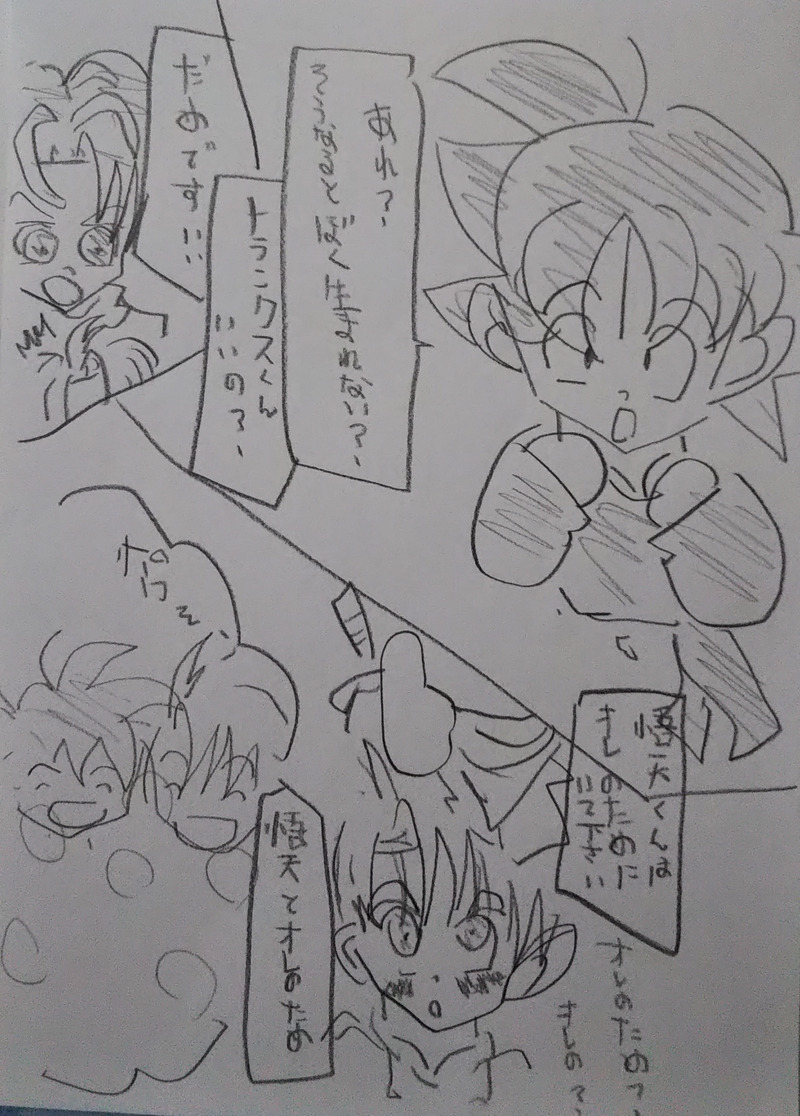 あれ?
そうするとぼく生まれない?
トランクスくん
いいの?
だめです!!
悟天くんは
オレのために
いて下さい
オレのため?
オレの?
悟天とオレのため
ポワン